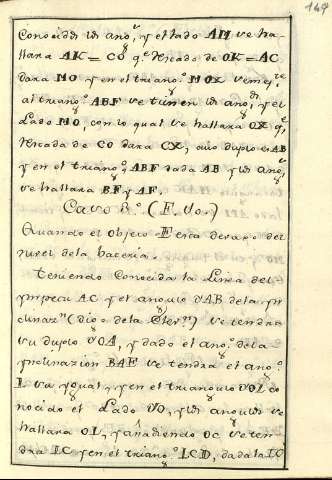 149
Conocidos los angos, y el lado AM se ha-
llara AK = CO q.e restado de OK = AC
dara MO y en el triango MOX semeje
al triango ABF se tienen los angos, y el
Lado MO, con lo qual se hallara OX q.e
restada de CO dara CX, cuio duplo es AB
y en el triango ABF dada AB y los angos
se hallara BF y AF.
Caso 8.o (F. Vor)
Quando el objeto F esta debaxo del
nivel dela bateria.
Teniendo Conocida la Linea del
ympecu AC y el angulo VAB dela yn
clinazn (digo dela Olern) se tendra
su duplo VOA, y dado el ango dela
ynclinazion BAF se tendra el ango
L su ygual, y en el triangulo VOL co
nocido el Lado VO, y los angulos se
hallara OL, y añadiendo OC se ten-
dra LC y en el triango LCD, dada la LC